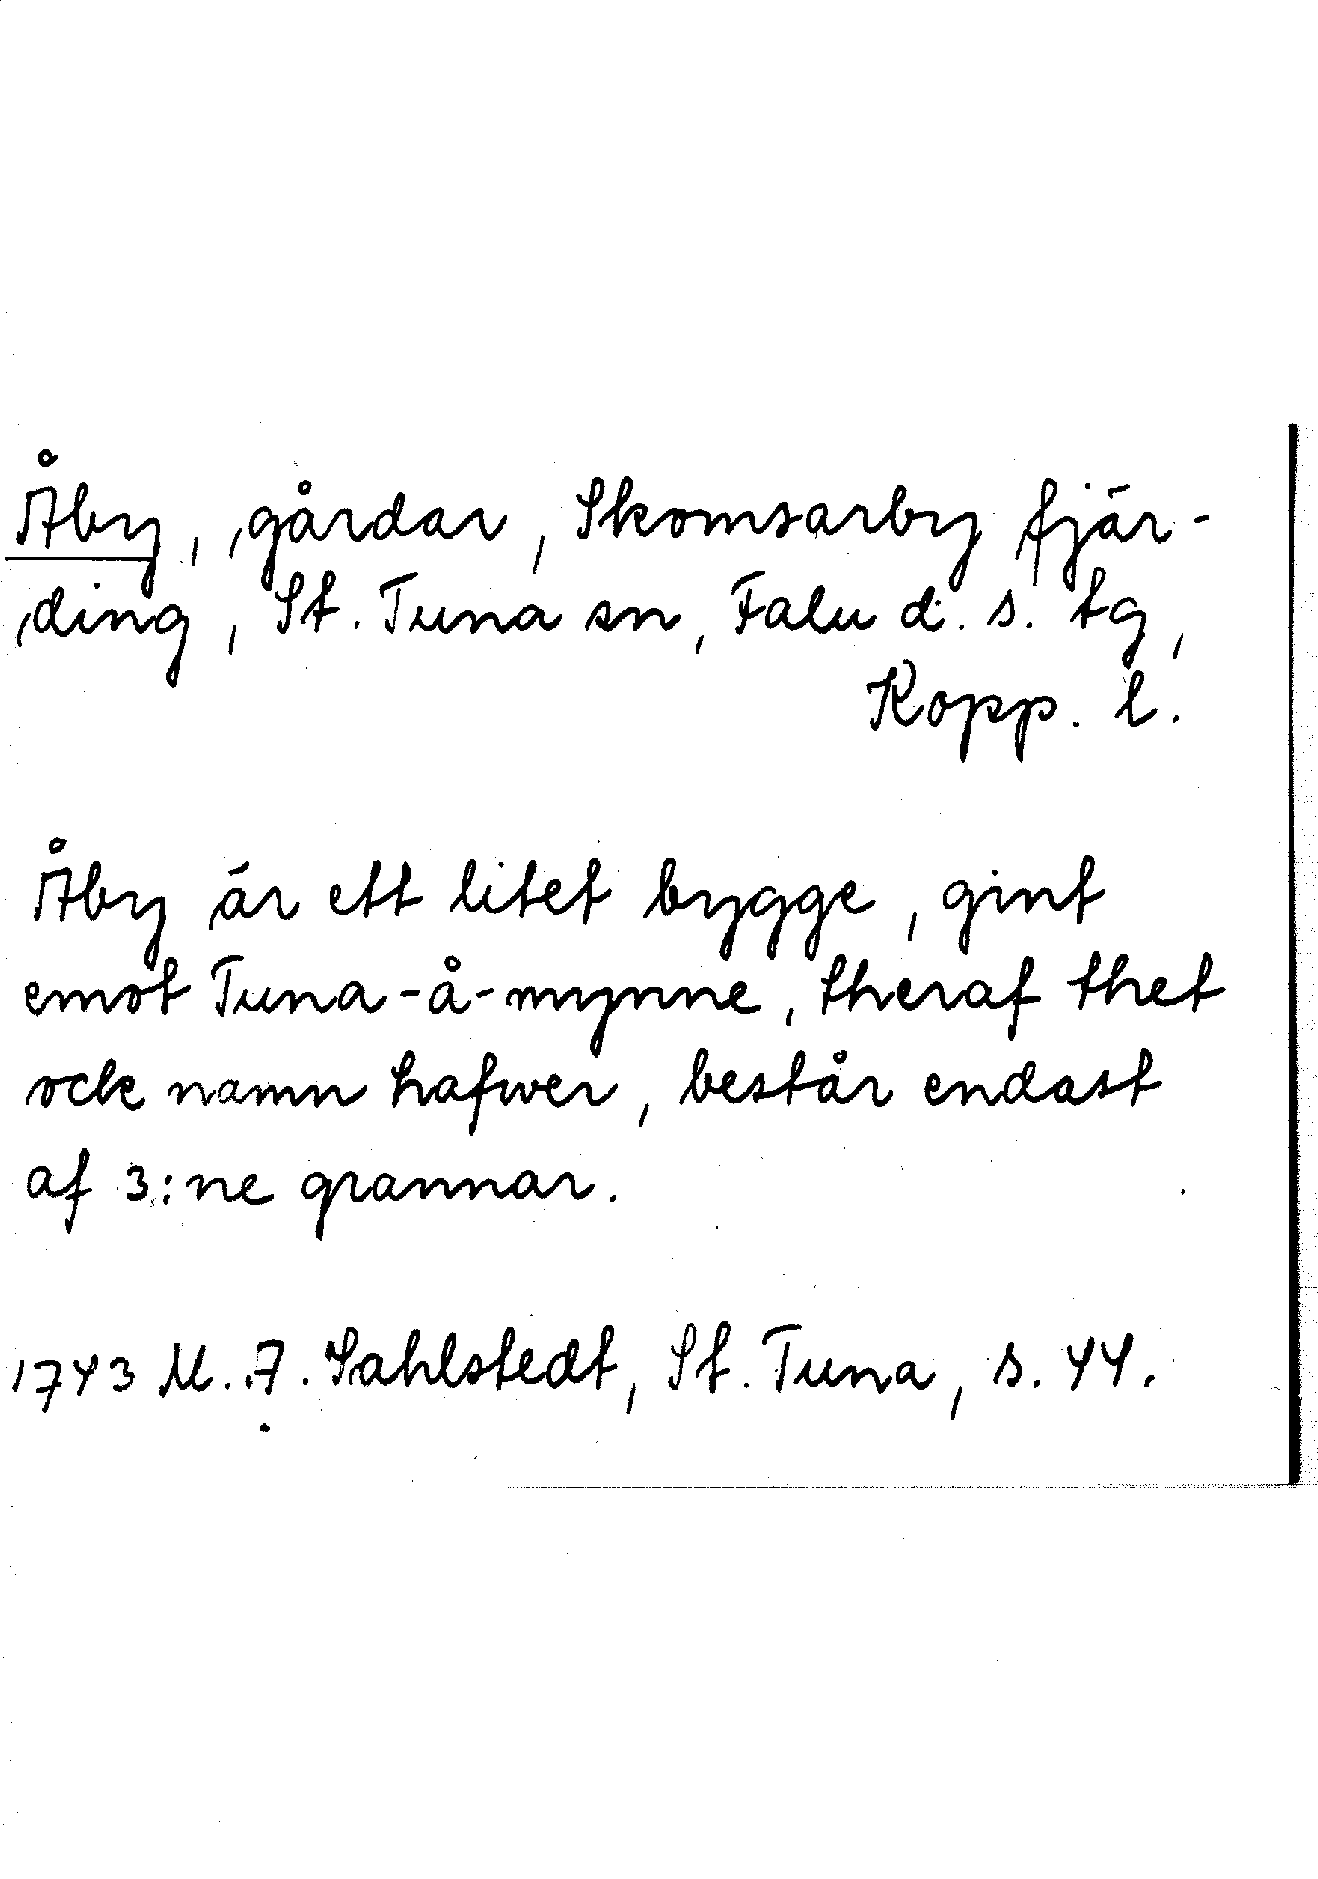 Åby, gårdar, Skomsarby fjär-
ding, St. Tuna sn, Falu d. s. tg,
Kopp. l.
Åby är ett litet bygge, gint
emot Tuna-å-mynne, theraf thet
ock namn hafwer, består endast
af 3:ne grannar.
1743 M. A. Sahlstedt, St. Tuna, s. 44.